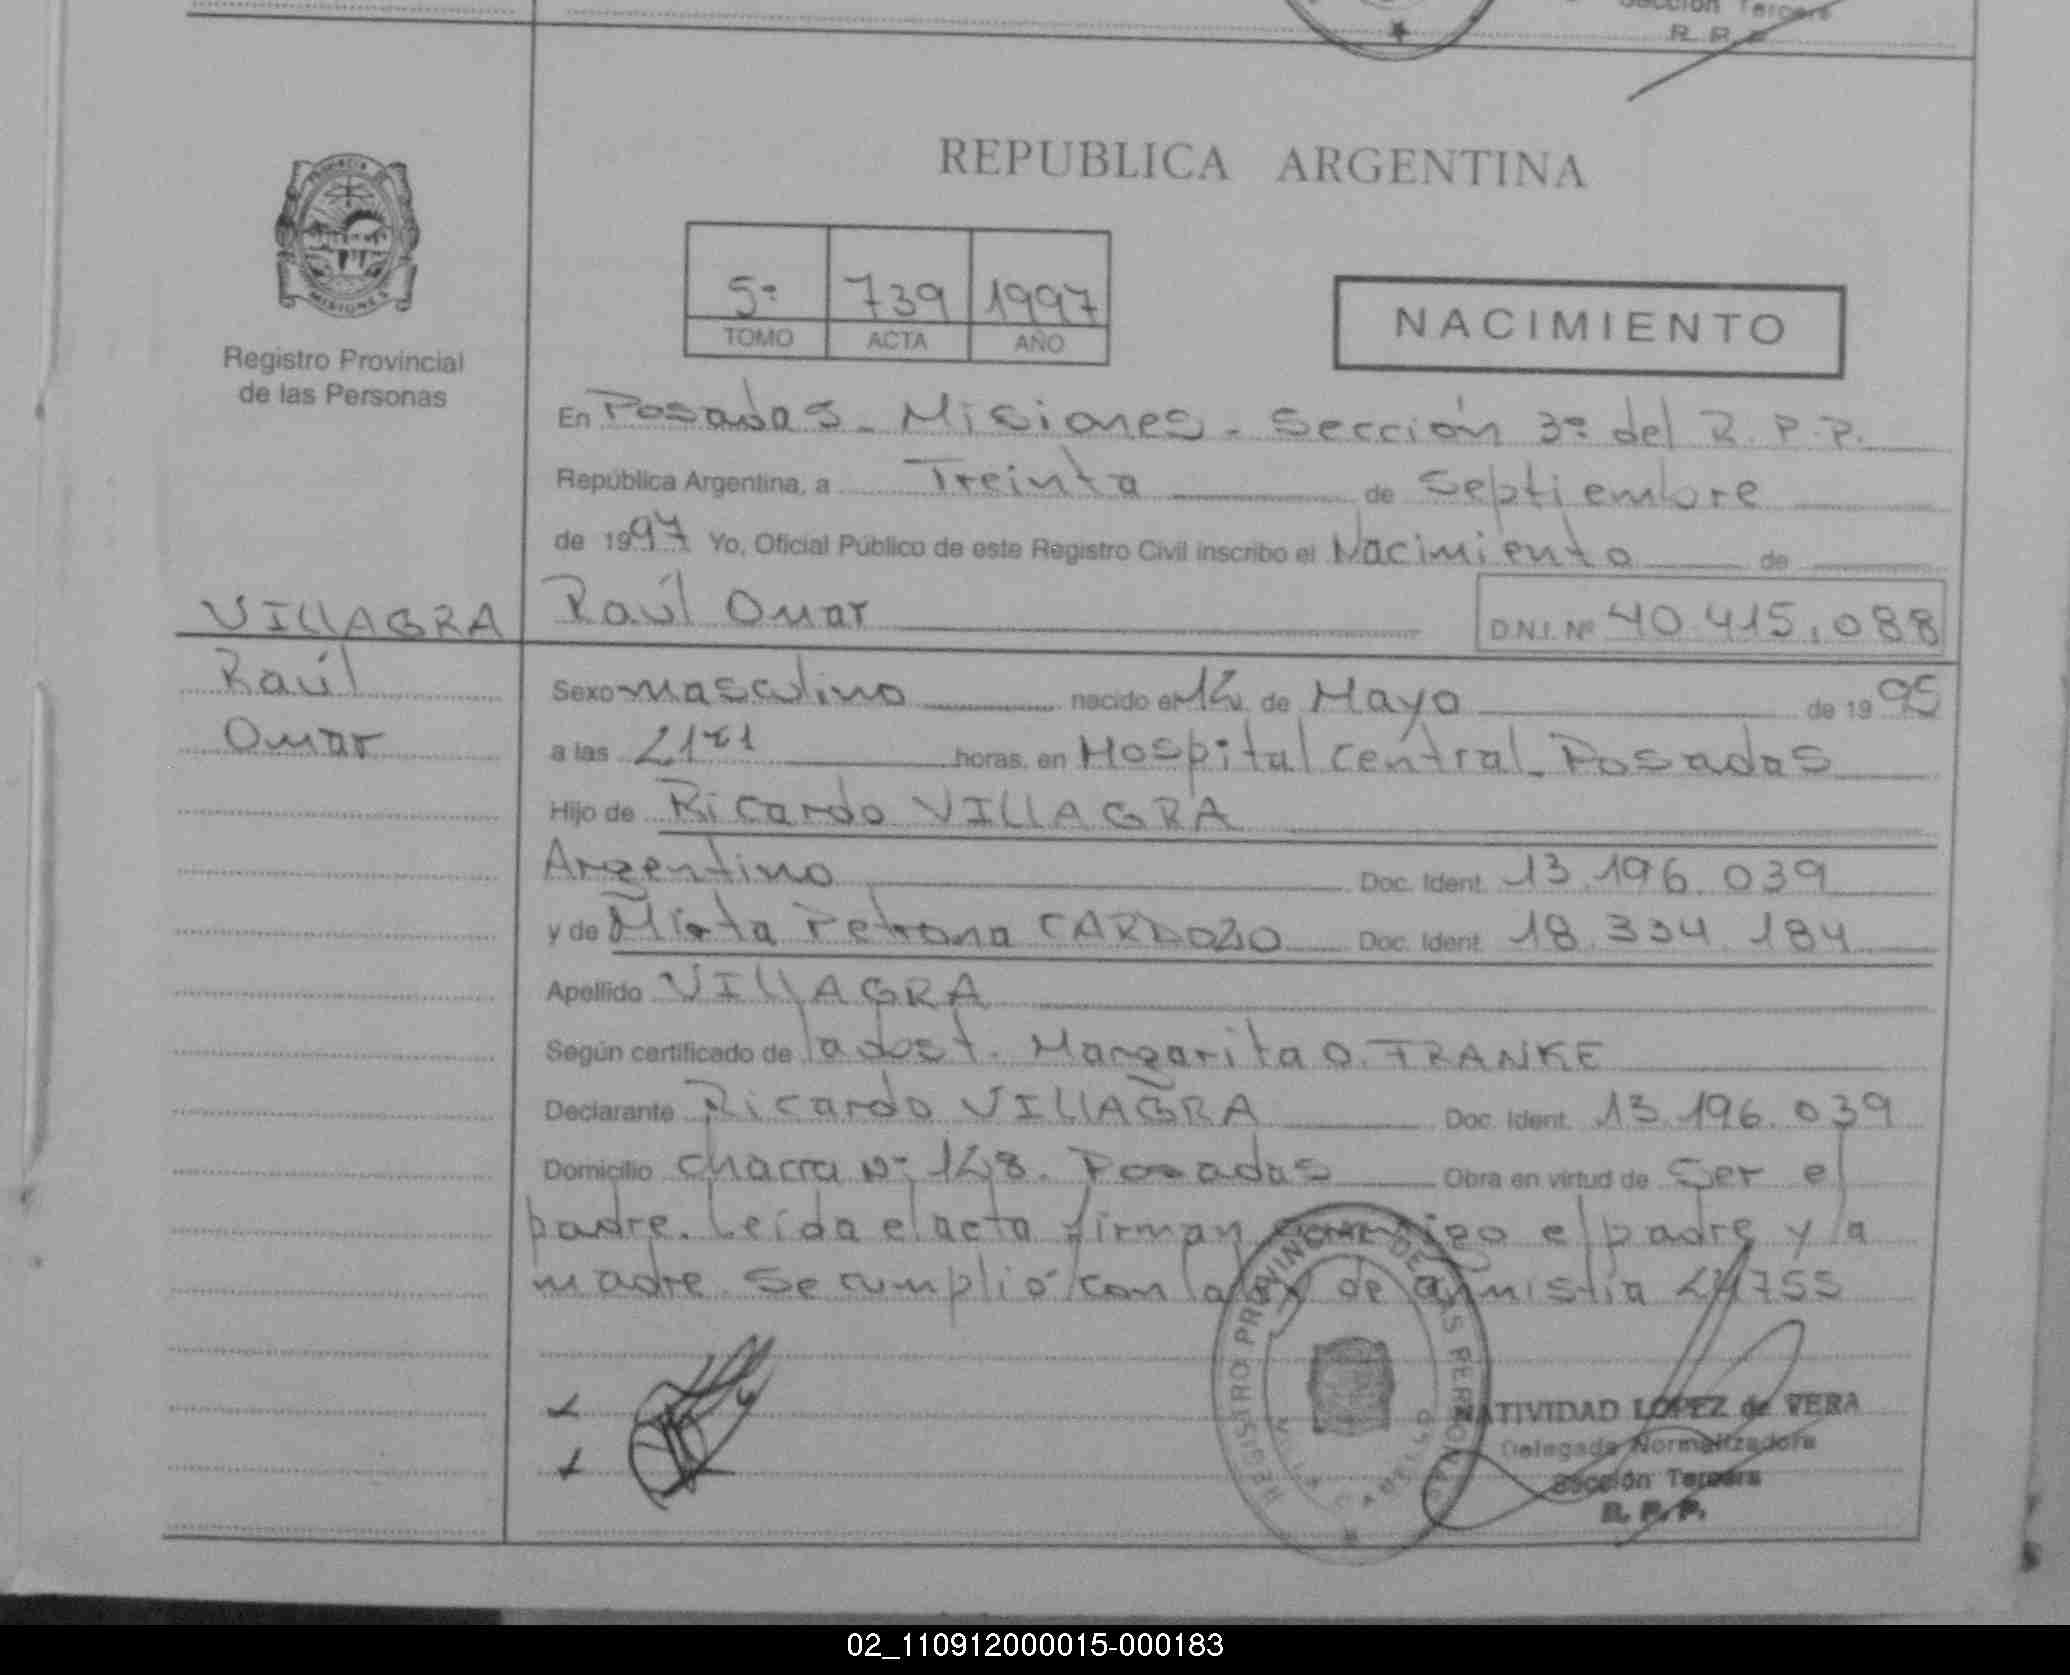 Sección Tercera
R. P. P.
PROVINCIA DE
MISIONES
Registro Provincial
de las Personas
REPUBLICA ARGENTINA
5º 739 1997
TOMO ACTA AÑO
NACIMIENTO
En Posadas - Misiones - Sección 3º del R. P. P.
República Argentina, a Treinta de Septiembre
de 1997 Yo, Oficial Público de este Registro Civil inscribo el Nacimiento de
VILLAGRA Raúl Omar D.N.I. Nº 40.415.088
Raúl
Omar
Sexo masculino nacido el 12 de Mayo de 1995
a las horas, en Hospital central - Posadas
Hijo de Ricardo VILLAGRA
Argentino Doc. Ident. 13.196.039
y de Mirta Petrona CARDOZO Doc. Ident. 18.334.184
Apellido VILLAGRA
Según certificado de la obst. Margarita O. FRANKE
Declarante Ricardo VILLAGRA Doc. Ident. 13.196.039
Domicilio chacra Nº 128. Posadas Obra en virtud de Ser el
padre. Leída el acta firman conmigo el padre y la
madre. Se cumplió con la ley de amnistía 24755
REGISTRO PROVINCIAL DE LAS PERSONAS
VILLA CABELLO
NATIVIDAD LOPEZ de VERA
Delegada Normalizadora
Sección Tercera
R. P. P.
02_110912000015-000183